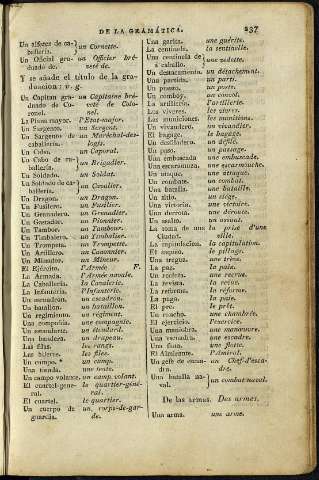 DE LA GRAMÁTICA. 237
Un alferez de caballería. un Cornette.
Un Oficial graduado de un Officier brévété de.
Y se añade el título de la graduacion: v. g.
Un Capitan graduado de Coronel. un Capitaine brévété de Colonel.
La Plana mayor. l'Etat-major.
Un Sargento. un Sergent.
Un Sargento de caballería. un Maréchal-des-logis.
Un Cabo. un Caporal.
Un Cabo de caballería. un Brigadier.
Un Soldado. un Soldat.
Un Soldado de caballería. un Cavalier.
Un Dragon. un Dragon.
Un Fusilero. un Fusilier.
Un Granadero. un Grenadier.
Un Gastador. un Pionnier.
Un Tambor. un Tambour.
Un Timbalero. un Timbalier.
Un Trompeta. un Trompette.
Un Artillero. un Canonnier.
Un Minador. un Mineur.
El Ejército. l'Armée F.
La Armada. l'Armée navale.
La Caballería. la Cavalerie.
La Infantería. l'Infanterie.
Un escuadron. un escadron.
Un batallon. un bataillon.
Un regimiento. un régiment.
Una compañía. une compagnie.
Un estandarte. un étendard.
Una bandera. un drapeau.
Las filas. les rangs.
Las hileras. les files.
Un campo. un camp.
Una tienda. une tente.
Un campo volante. un camp volant.
El cuartel-general. le quartier-général.
El cuartel. le quartier.
Un cuerpo de guardia. un corps-de-garde.
Una garita. une guérite.
La centinela. la sentinelle.
Una centinela de á caballo. une vedette.
Un destacamento. un détachement.
Una partida. un parti.
Un puesto. un poste.
Un comboy. un convoi.
La artillería. l'artillerie.
Los víveres. les vivres.
Las municiones. les munitions.
Un vivandero. un vivandier.
El bagage. le bagage.
Un desfiladero. un défilé.
Un paso. un passage.
Una emboscada. une embuscade.
Una escaramuza. une escarmouche.
Un ataque. une attaque.
Un combate. un combat.
Una batalla. une bataille.
Un sitio. un siège.
Una victoria. une victoire.
Una derrota. une déroute.
Un asalto. un assaut.
La toma de una Ciudad. la prise d'une ville.
La capitulacion. la capitulation.
El saqueo. le pillage.
Una tregua. une trêve.
La paz. la paix.
Un recluta. une recrue.
La revista. la revue.
La reforma. la réforme.
La paga. la paie.
El pre. le prêt.
Un rancho. une chambrée.
El ejercicio. l'exercice.
Una maniobra. une manœuvre.
Una escuadra. une escadre.
Una flota. une flotte.
El Almirante. l'Amiral.
Un gefe de escuadra. un Chef-d'escadre.
Una batalla naval. un combat naval.
De las armas. Des armes.
Una arma. une arme.